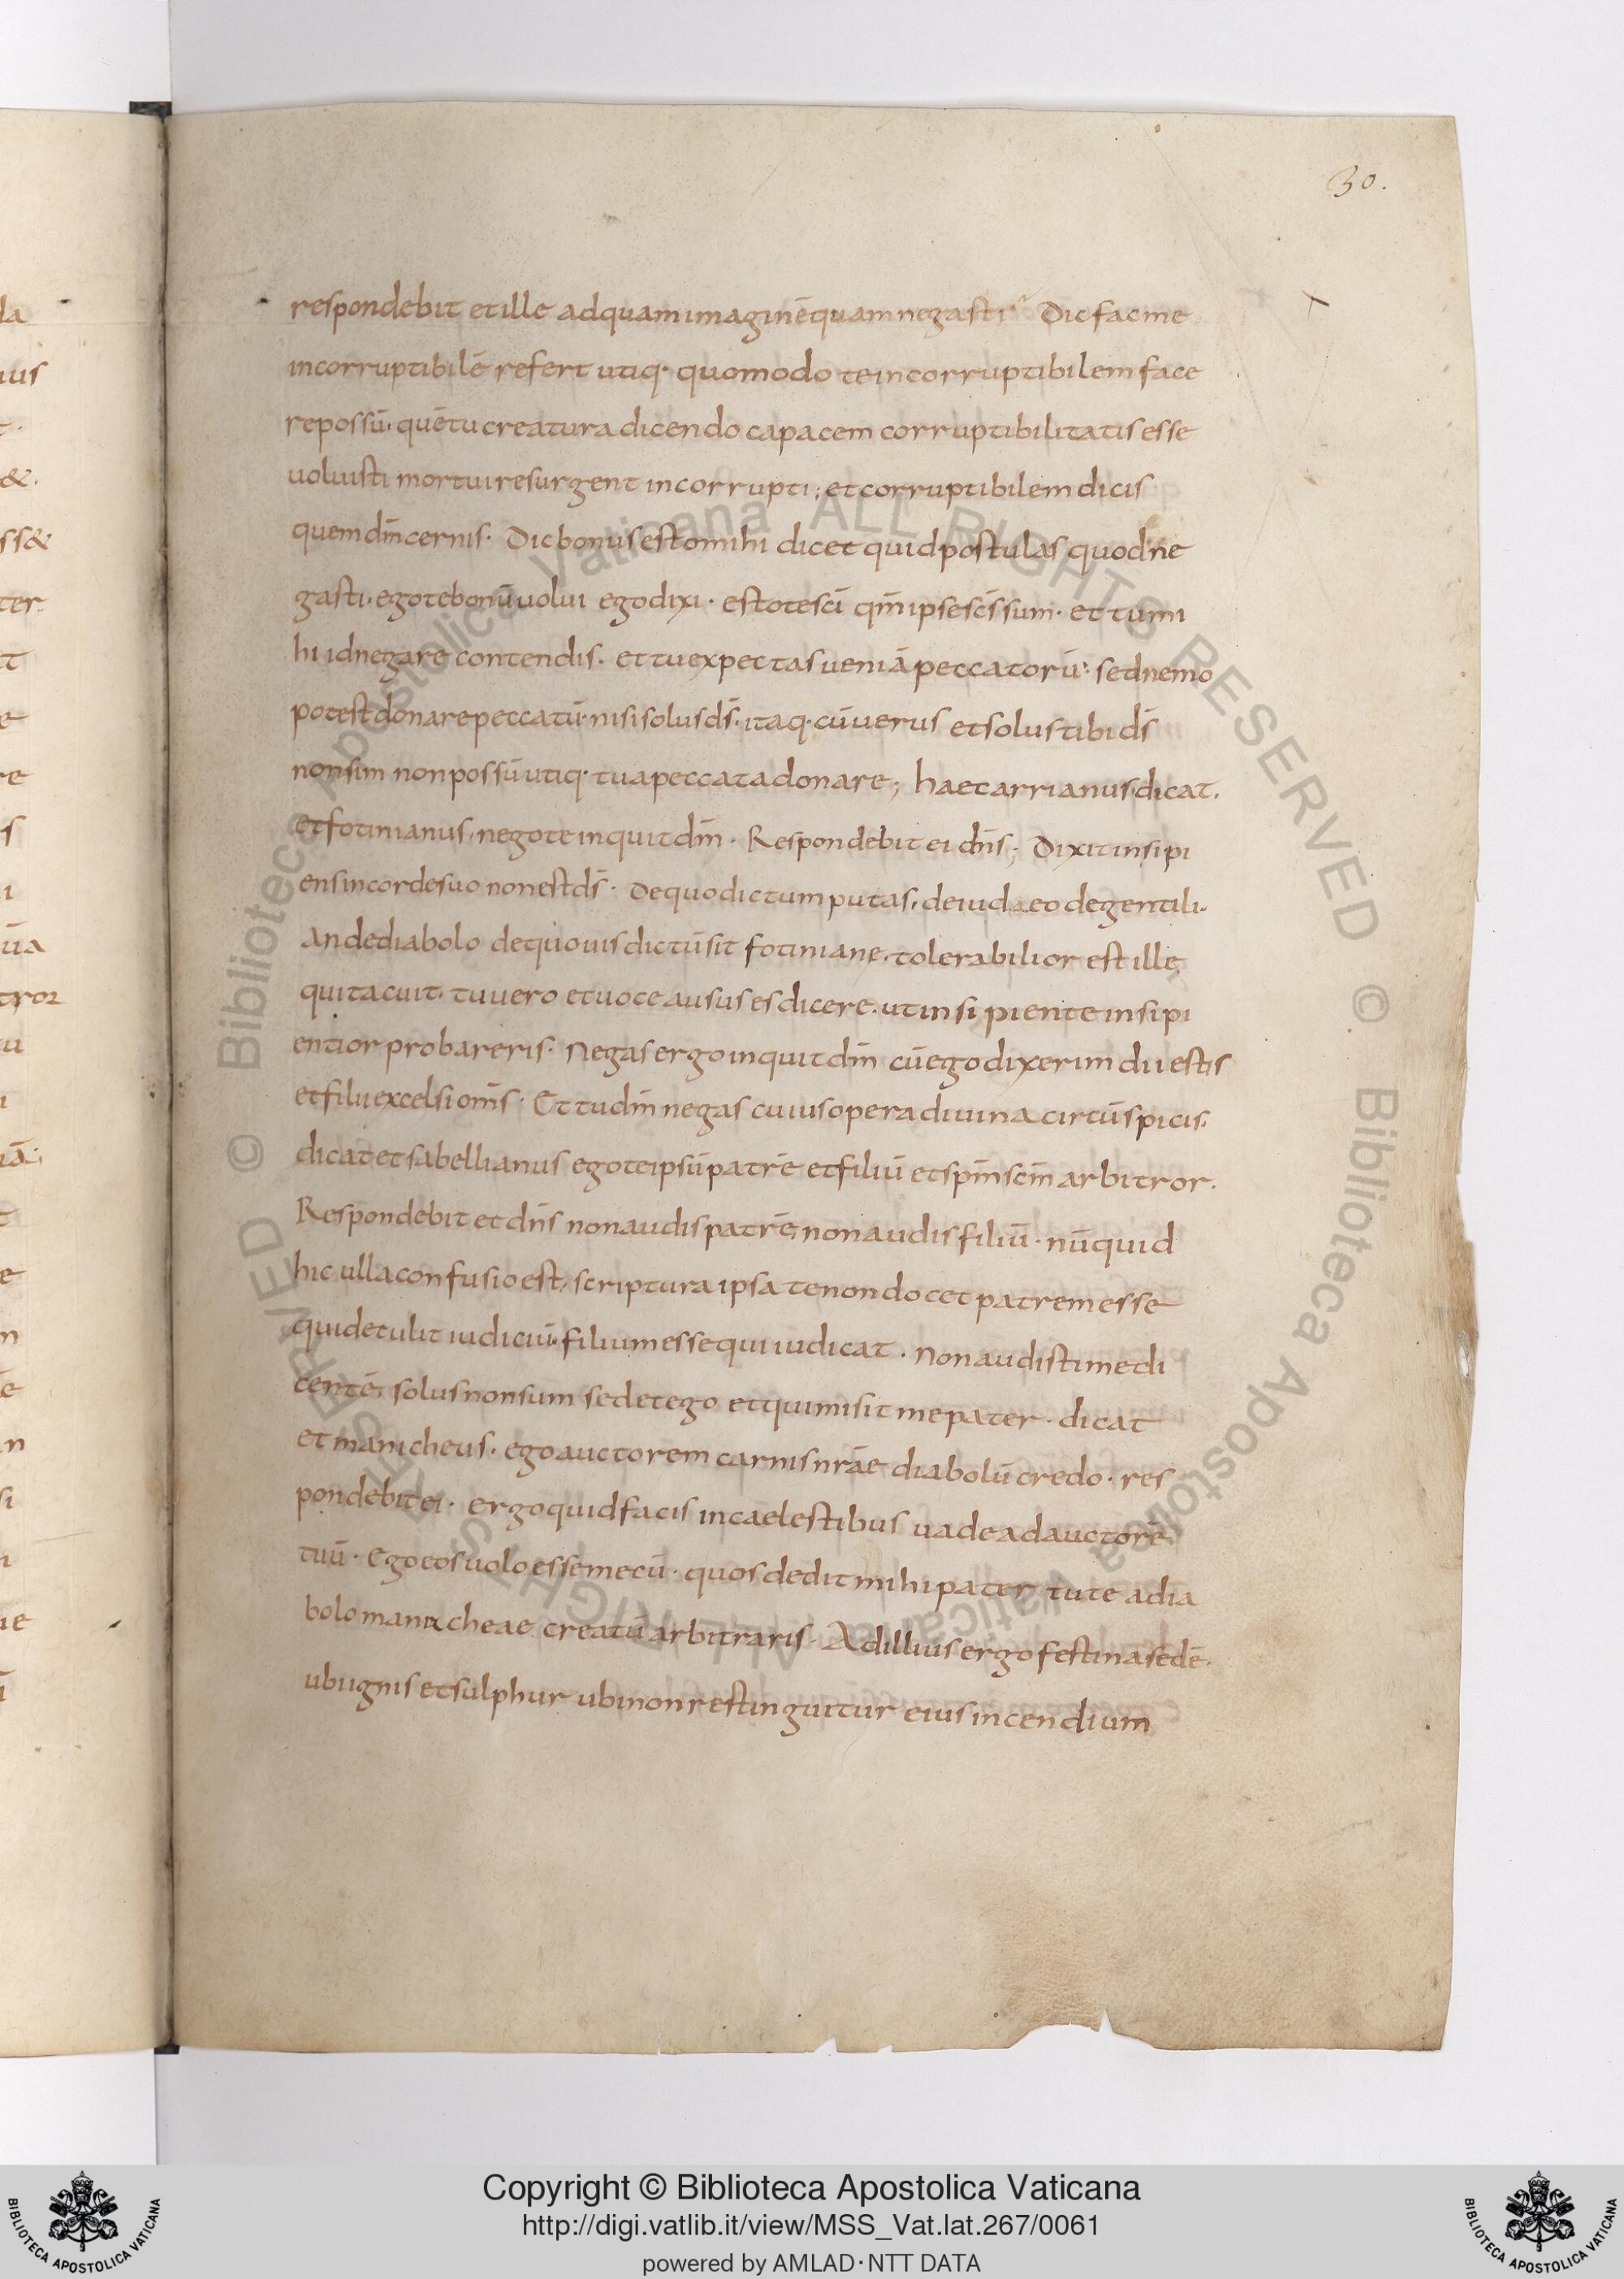 30.
respondebit et ille ad quam imaginē quam negasti Dic fac me
incorruptibilē refert utiq· quomodo te incorruptibilem face
re possū· quē tu creatura dicendo capacem corruptibilitatis esse
uoluisti mortui resurgent incorrupti; et corruptibilem dicis
quem dm̄ cernis· Dic bonus esto mihi dicet quid postulas quod ne
gasti· ego te bonū uolui ego dixi· estote scī qm̄ ipse scs̄ sum· et tu mi
hi id negare contendis· et tu expectas ueniā peccatorū· sed nemo
potest donare peccatū· nisi solus ds̄· itaq· cū uerus et solus tibi ds̄
non sim non possū utiq· tua peccata donare; haec arrianus dicat.
et fotinianus· nego te inquit dm̄· Respondebit ei dn̄s; Dixit insipi
ens in corde suo non est ds̄· De quo dictum putas, de iudaeo de gentili·
An de diabolo de quouis dictū sit fotiniane· tolerabilior est ille
qui tacuit· tu uero et uoce ausus es dicere· ut insipiente insipi
entior probareris· Negas ergo inquit dm̄ cū ego dixerim dii estis
et filii excelsi om̄s· Et tu dm̄ negas cuius opera diuina circūspicis·
dicat et sabellianus ego te ipsū patrē et filiū et spm̄ scm̄ arbitror·
Respondebit et dn̄s non audis patrē, non audis filiū· nūquid
hic ulla confusio est, scriptura ipsa te non docet patrem esse
qui detulit iudiciū· filium esse qui iudicat· Non audisti me di
centē, solus non sum sed et ego et qui misit me pater· dicat
et manicheus· ego auctorem carnis nrāe diabolū credo· res
pondebit ei· ergo quid facis in caelestibus uade ad auctorē
tuū· Ego eos uolo esse mecū· quos dedit mihi pater tu te a dia
bolo manicheae creatū arbitraris· Ad illius ergo festina sedē·
ubi ignis et sulphur ubi non restinguitur eius incendium
Biblioteca Apostolica Vaticana ALL RIGHTS RESERVED © Biblioteca Apostolica Vaticana ALL RIGHTS RESERVED ©
BIBLIOTECA APOSTOLICA VATICANA
Copyright © Biblioteca Apostolica Vaticana
http://digi.vatlib.it/view/MSS_Vat.lat.267/0061
powered by AMLAD·NTT DATA
BIBLIOTECA APOSTOLICA VATICANA